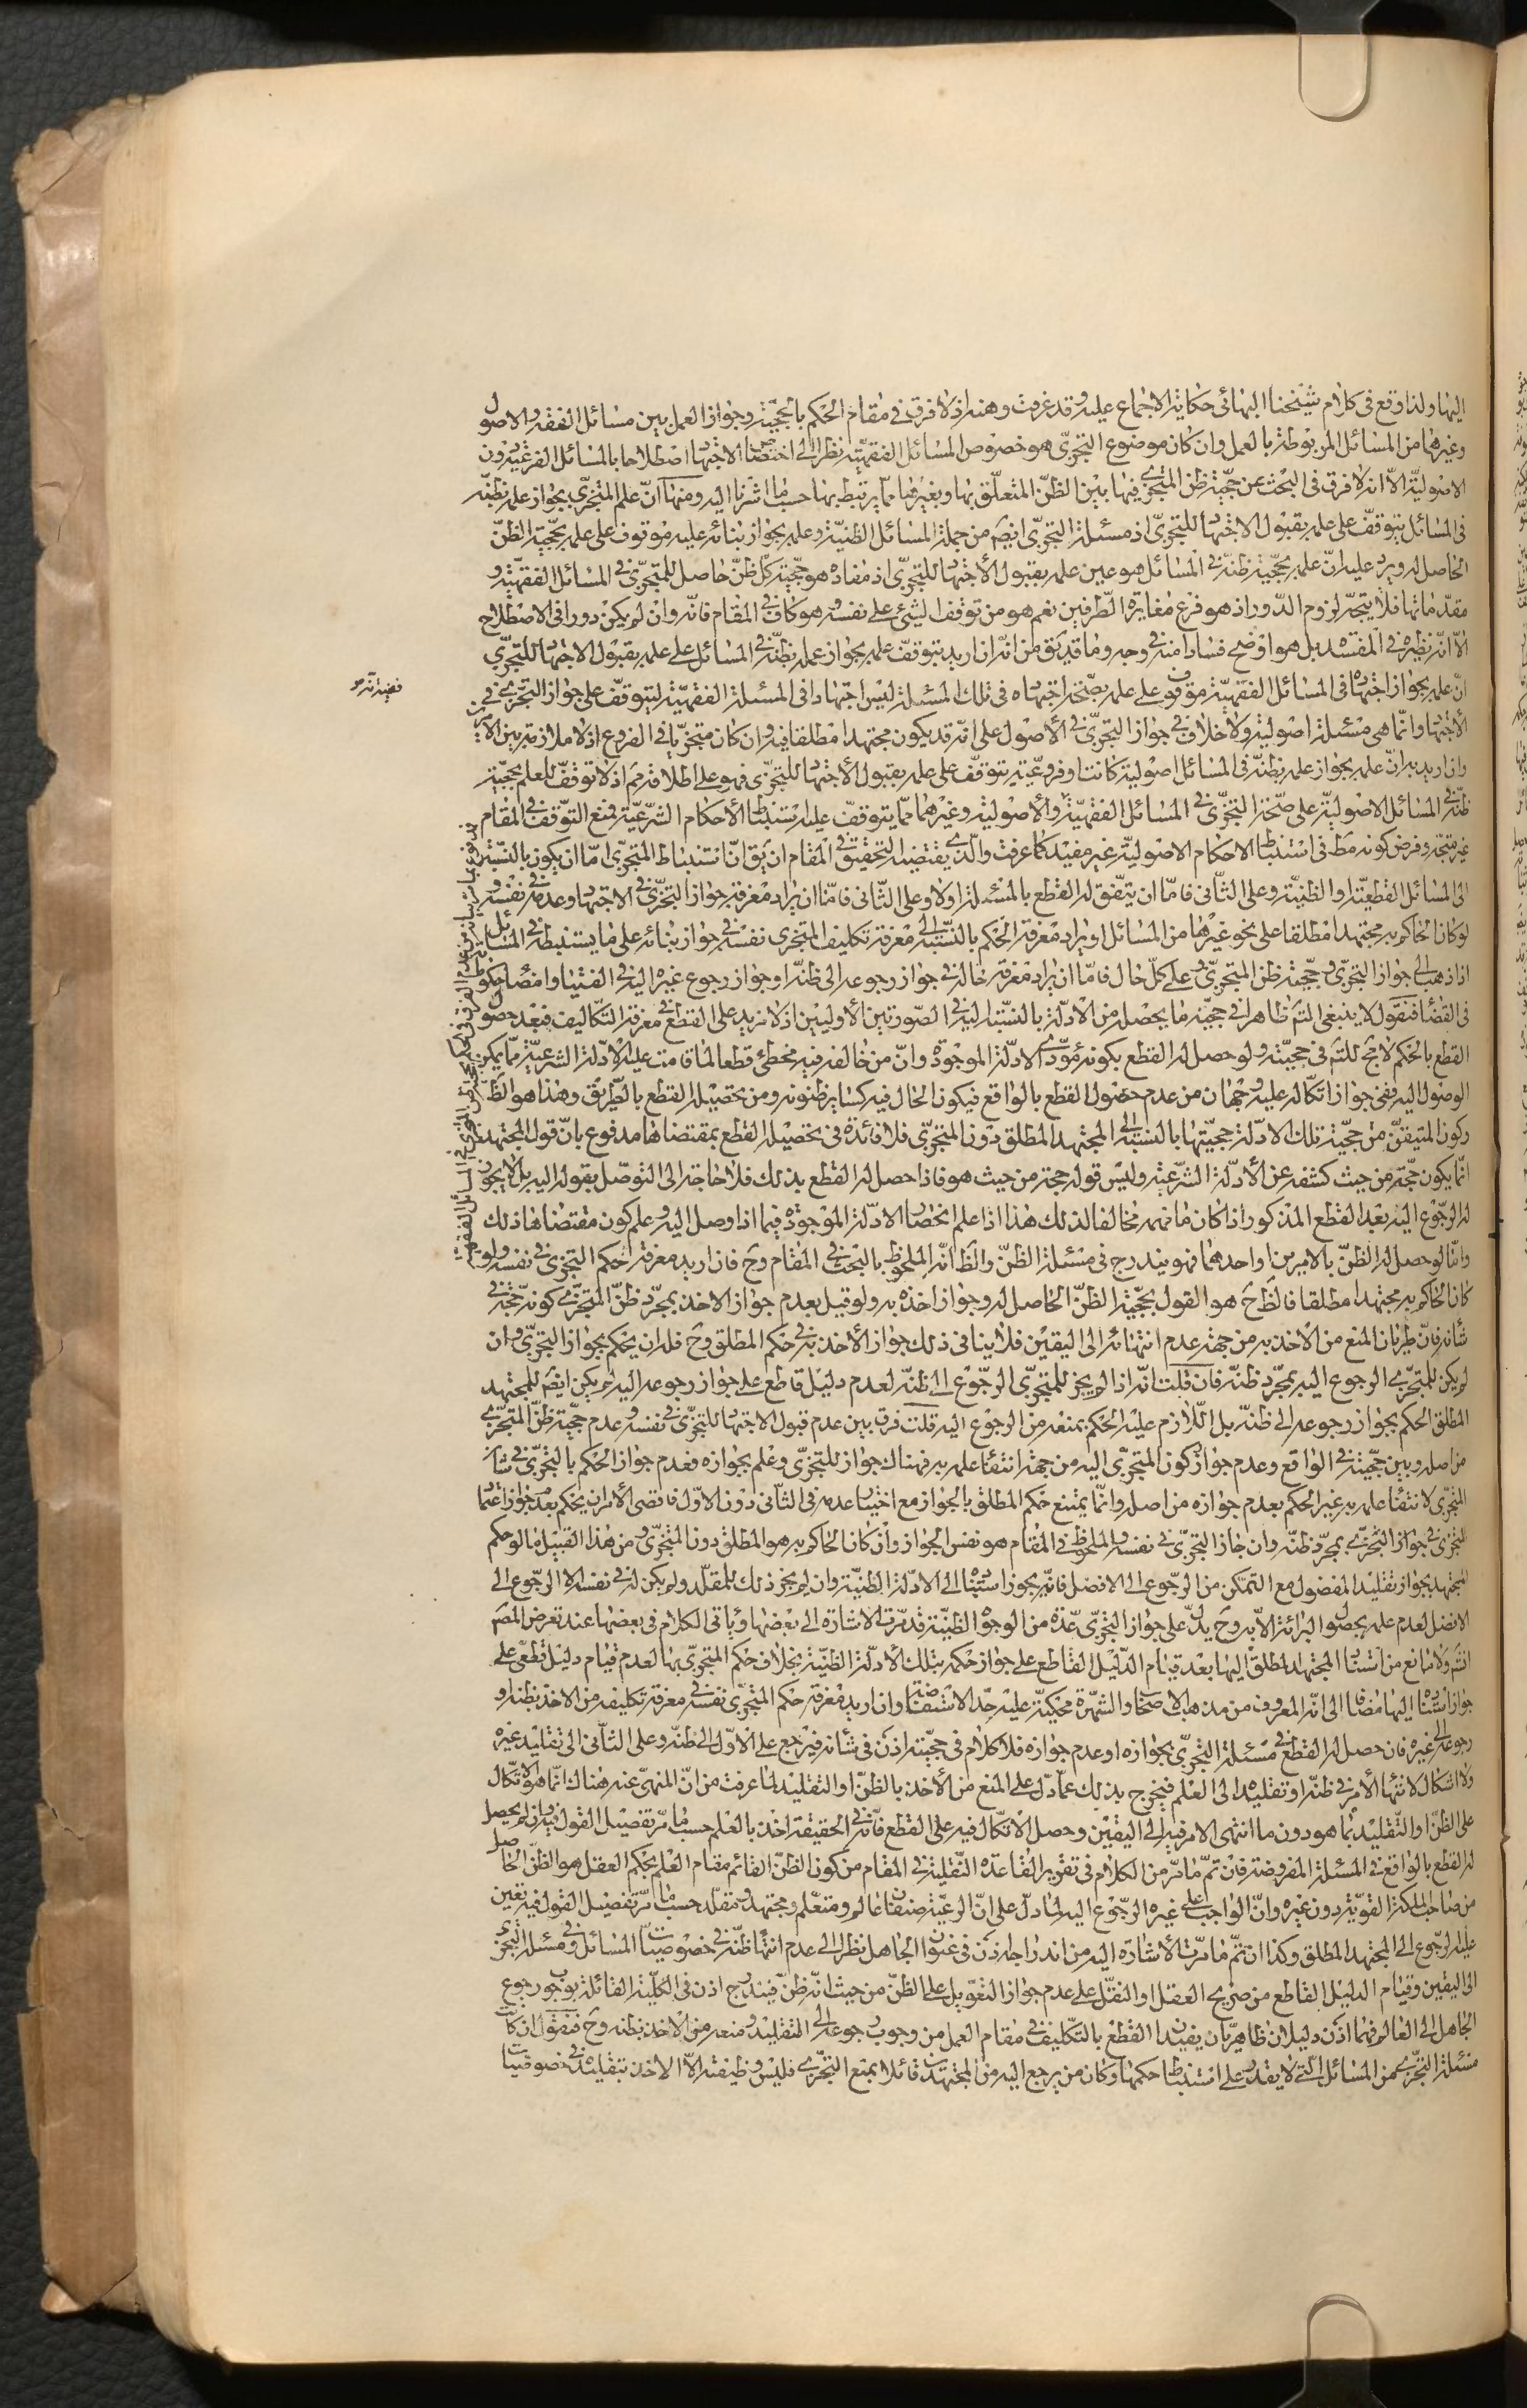 اليها ولذا وقع في كلام شيخنا البهائي حكاية الاجماع عليه وقد عرفت وهنه اذ لا فرق في مقام الحكم بالحجّية وجواز العمل بين مسائل الفقه والاصول
وغيرهما من المسائل المربوطة بالعمل وان كان موضوع التجزّي هو خصوص المسائل الفقهيّة نظرا الى اختصاص الاجتهاد اصطلاحا بالمسائل الفرعيّة دون
الاصوليّة الّا انه لا فرق في البحث عن حجّية ظن المتجزّي فيها بين الظنّ المتعلّق بها وبغيرها ممّا يرتبط بها حسبما اشرنا اليه ومنها انّ علم المتجزّي بجواز عمله بظنّه
في المسائل يتوقّف على علمه بقبول الاجتهاد للتجزّي اذ مسئلة التجزّي ايضم من جملة المسائل الظنيّة وعلمه بجواز بنائه عليه موقوف على علمه بحجّية الظنّ
الحاصل له ويرد عليه انّ علمه بحجّية ظنّه في المسائل هو عين علمه بقبول الاجتهاد للتجزّي اذ مفاده هو حجّية كلّ ظنّ حاصل للمتجزّي في المسائل الفقهيّة و
مقدّماتها فلا يتجّه لزوم الدّور اذ هو فرع مغايرة الطّرفين نعم هو من توقف الشيء على نفسه وهو كاف في المقام فانّه وان لم يكن دورا في الاصطلاح
الّا انّه نظيره في المفسدة بل هو اوضح فسادا منه في وجه وما قد يق من انّه ان اريد بتوقّف علمه بجواز عمله بظنّه في المسائل على علمه بقبول الاجتهاد للتجزّي
انّ علمه بجواز اجتهاده في المسائل الفقهيّة موقوف على علمه بصحّة اجتهاده في تلك المسئلة ليس اجتهادا في المسئلة الفقهيّة ليتوقّف على جواز التجزّي في
الاجتهاد وانّما هي مسئلة اصولية ولا خلاف في جواز التجزّي في الأصول على انّه قد يكون مجتهدا مطلقا فيه وان كان متجزّيا في الفروع اذ لا ملازمة بين الامرين
وان اريد به انّ علمه بجواز علمه بظنّه في المسائل اصولية كانت او فروعيّة يتوقّف على علمه بقبول الأجتهاد للتجزّي فهو على اطلاقه مم اذ لا توقّف للعلم بحجيّة
ظنّه في المسائل الاصوليّة على صحّة التجزّي في المسائل الفقهيّة والأصولية وغيرهما ممّا يتوقف عليه استنباط الأحكام الشّرعيّة فمنع التوّقف في المقام
غير متجّه وفرض كونه مط في استنباط الاحكام الاصوليّة غير مفيد كما عرفت والّذي يقتضيه التحقيق في المقام ان يق انّ استنباط المتجزّي امّا ان يكون بالنّسبة
الى المسائل القطعيّة او الظنيّة وعلى الثّاني فامّا ان يتّفق له القطع بالمسئلة اولا وعلى الثّاني فامّا ان يراد معرفة جواز التجزّي في الاجتهاد وعدمه في نفسه و
لو كان الحاكم به مجتهدا مطلقا على نحو غيرها من المسائل او يراد معرفة الحكم بالنّسبة الى معرفة تكليف المتجزي نفسه في جواز بنائه على ما يستنبطه في المسائل
اذا ذهب الى جواز التجزّي وحجّية ظن المتجزّي وعلى كلّ حال فامّا ان يراد معرفة حاله في جواز رجوعه الى ظنّه او جواز رجوع غيره اليه في الفتيا وامضاء حكومته
في القضاء فنقول لا ينبغي التم ظاهرا في حجيّة ما يحصله من الأدلّة بالنسّبة اليه في الصّورتين الأوليين اذ لا مزيد على القطع في معرفة التكّاليف فبعد حصول
القطع بالحكم لا بحج للتم في حجيّته ولو حصل له القطع بكونه مؤدّى الادلّة الموجودة وانّ من خالفه فيه مخطئ قطعا لما قامت عليه الأدلّة الشرعيّة ممّا يمكن
الوصول اليه ففي جواز اتكّاله عليه وجهان من عدم حصول القطع بالواقع فيكون الحال فيه كساير ظنونه ومن تحصيله القطع بالطّريق وهذا هو الظّ
وكون المتيقّن من حجّية تلك الادلّة حجيّتها بالنّسبة الى المجتهد المطلق دون المتجزّي فلا فائدة في تحصيله القطع بمقتضاها مدفوع بانّ قول المجتهد
انّما يكون حجّة من حيث كشفه عن الأدلّة الشّرعيّة وليس قوله حجة من حيث هو فاذا حصل له القطع بذلك فلا حاجة الى التوصّل بقوله اليه بل لا يجوز
له الرجوع اليه بعد القطع المذكور اذا كان ما فهمه مخالفا لذلك هذا اذا علم انحصار الادلّة الموجودة فيما اذا وصل اليه وعلم كون مقتضاها ذلك
وامّا لو حصل له الظنّ بالامرين او احدهما فهو يندرج في مسئلة الظنّ والظ انّه الملحوظ بالبحث في المقام وح فان اريد معرفة حكم التجزي في نفسه ولو
كان الحاكم به مجتهدا مطلقا فالظ ح هو القول بحجّية الظنّ الحاصل له وجواز اخذه به ولو قيل بعدم جواز الاخذ بمجرّد ظنّ المتجزّي كونه حجّة في
شأنه فانّ طريان المنع من الأخذ به من جهة عدم انتهائه الى اليقين فلا ينافي ذلك جواز الأخذ به في حكم المطلق وح فله ان يحكم بجواز التجزّي وان
لم يكن للمتجزّي الرجوع اليه بمجرّد ظنّه فان قلت انّه اذا لم يجز للمتجزّي الرجوع الى ظنّه لعدم دليل قاطع على جواز رجوعه اليه لم يكن ايضم للمجتهد
المطلق الحكم بجواز رجوعه الى ظنّه بل اللّازم عليه الحكم بمنعه من الرجوع اليه قلت فرق بين عدم قبول الاجتهاد للتجزّي في نفسه وعدم حجّية ظنّ المتجزّي
من اصله وبين حجّيته في الواقع وعدم جواز ركون المتجزّي اليه من جهة انتفاء علمه به فهناك جواز للتجزّي وعلم بجوازه فعدم جواز الحكم بالتجزّي في شأن
المتجزّي لانتفاء علمه به غير الحكم بعدم جوازه من اصله وانّما يمتنع حكم المطلق بالجواز مع اختيار عدمه في الثّاني دون الاوّل فاقصى الأمر ان يحكم بعدم جواز اعتماد
المتجزّي في جواز التجزّي بمجرّد ظنّه وان جاز التجزّي في نفسه والملحوظ في المقام هو نفس الجواز وان كان الحاكم به هو المطلق دون المتجزّي ومن هذا القبيل ما لو حكم
المجتهد بجواز تقليد المفضول مع التمكّن من الرجوع الى الافضل فانّه يجوز استناده الى الادلّة الظنيّة وان لم يجز ذلك للمقلّد ولم يكن له في نفسه الّا الرجوع الى
الافضل لعدم علمه بحصول البرائة الّا به وح يدلّ على جواز التجزّي عدّة من الوجوه الظنيّة قد مرّت الاشارة الى بعضها ويأتي الكلام في بعضها عند تعرض المصم
انتم ولا مانع من استناد المجتهد المطلق اليها بعد قيام الدّليل القاطع على جواز حكمه بتلك الأدلّة الظنيّة بخلاف حكم المتجزّي بها لعدم قيام دليل قطعي على
جواز استناده اليها مضافا الى انّه المعروف من مذهب الاصحاب والشهرة محكيّة عليه حدّ الاستفاضة وان اريد معرفة حكم المتجزّي نفسه في معرفة تكليفه من الاخذ بظنه او
رجوعه الى غيره فان حصل له القطع في مسئلة التجزّي بجوازه او عدم جوازه فلا كلام في حجيته اذن في شأنه فيرجع على الاوّل الى ظنّه وعلى الثّاني الى تقليد غيره
ولا اشكال لانتهاء الأمر في ظنّه او تقليده الى العلم فيخرج بذلك عمّا دلّ على المنع من الأخذ بالظنّ او التقليد لما عرفت من انّ المنهيّ عنه هناك انّما هو الاتكّال
على الظنّ او التّقليد بما هو دون ما انتهى الامر فيه الى اليقين وحصل الاتّكال فيه على القطع فانّه في الحقيقة اخذ بالعلم حسبما مرّ تفصيل القول فيه وان لم يحصل
له القطع بالواقع في المسئلة المفروضة فان تمّ ما مرّ من الكلام في تقرير القاعدة النّقليّة في المقام من كون الظنّ القائم مقام العلم بحكم العقل هو الظنّ الحاصل
من صاحب الملكة القويّة دون غيره وانّ الواجب على غيره الرجوع اليه لما دلّ على انّ الرعيّة صنفان عالم ومتعلّم ومجتهد ومقلّد حسبما مرّ تفصيل القول فيه تعين
عليه الرجوع الى المجتهد المطلق وكذا ان تمّ ما مرّت الأشارة اليه من اندراجه اذن في عنوان الجاهل نظرا الى عدم انتهاء ظنّه في خصوصيّات المسائل وفي مسئلة التجزّي
الى اليقين وقيام الدليل القاطع من صريح العقل او النقل على عدم جواز التعويل على الظنّ من حيث انّه ظنّ فيندرج اذن في الكلّية القائلة بوجوب رجوع
الجاهل الى العالم فهما اذن دليلان ظاهريّان يفيدان القطع بالتكّليف في مقام العمل من وجوب رجوعه الى التقليد ومنعه من الاخذ بظنه وح فنقول ان كان
مسئلة التجزّي من المسائل الّتي لا يقدر على استنباط حكمها وكان من يرجع اليه من المجتهدين قائلا بمنع التجزّي فليس وظيفته الّا الاخذ بتقليده في خصوصيّات